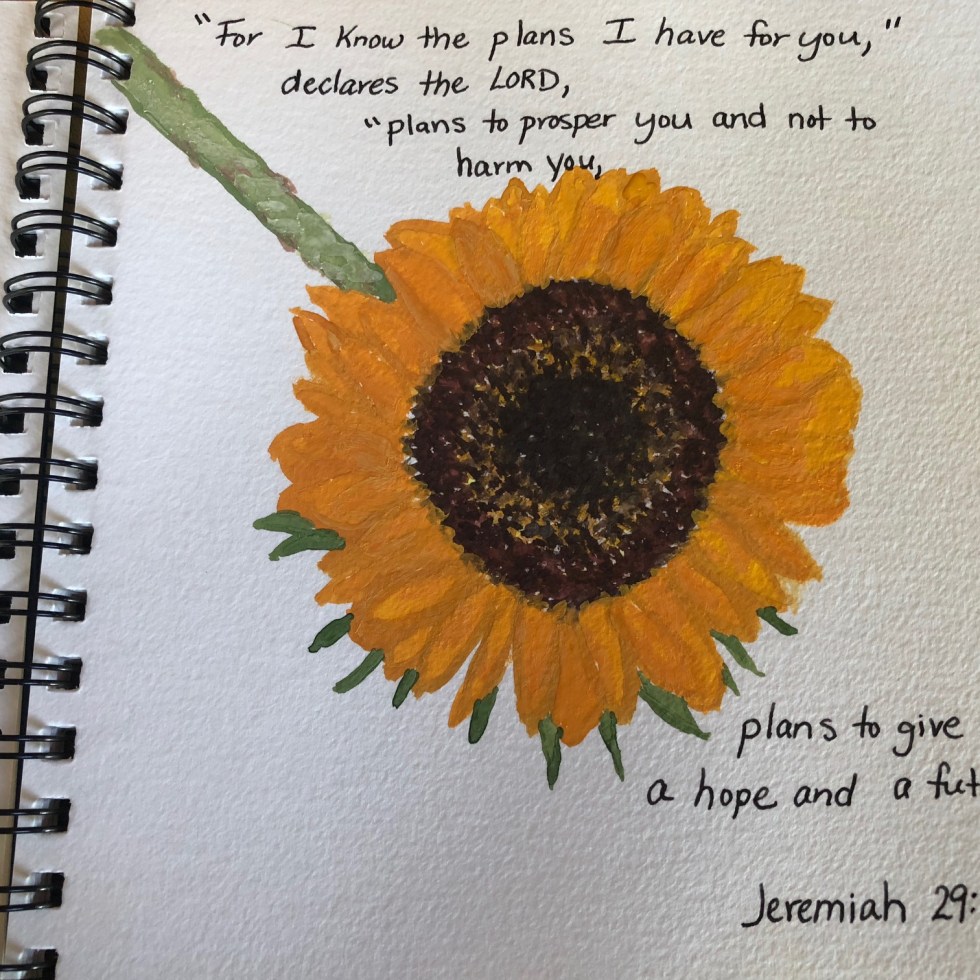 "For I Know the plans I have for you,"
declares the LORD,
"plans to prosper you and not to
harm you,
plans to give
a hope and a fut
Jeremiah 29: